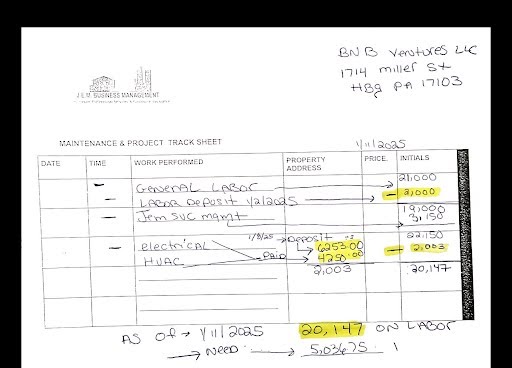 BNB Ventures LLC
1714 miller St
HBg PA 17103
J.E.M. BUSINESS MANAGEMENT
MAINTENANCE & PROJECT TRACK SHEET 1/11/2025
DATE TIME WORK PERFORMED PROPERTY ADDRESS PRICE. INITIALS
- GENERAL LABOR 21,000
LABOR Deposit 1/2/2025 - 2,000
- Jem SVC mgmt 19,000
3,150
1/9/25 → Deposit 22,150
- electrical 6253.00 - 2,003
HVAC PAID 4250.00
2,003 20,147
AS OF → 1/11/2025 20,147 ON LABOR
→ NEED → 5,036.75